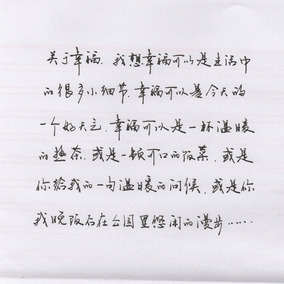 关于幸福，我想幸福可以是生活中
的很多小细节，幸福可以是今天的
一个好天气，幸福可以是一杯温暖
的热茶，或是一顿可口的饭菜，或是
你给我的一句温暖的问候，或是你
我晚饭后在公园里悠闲的漫步……